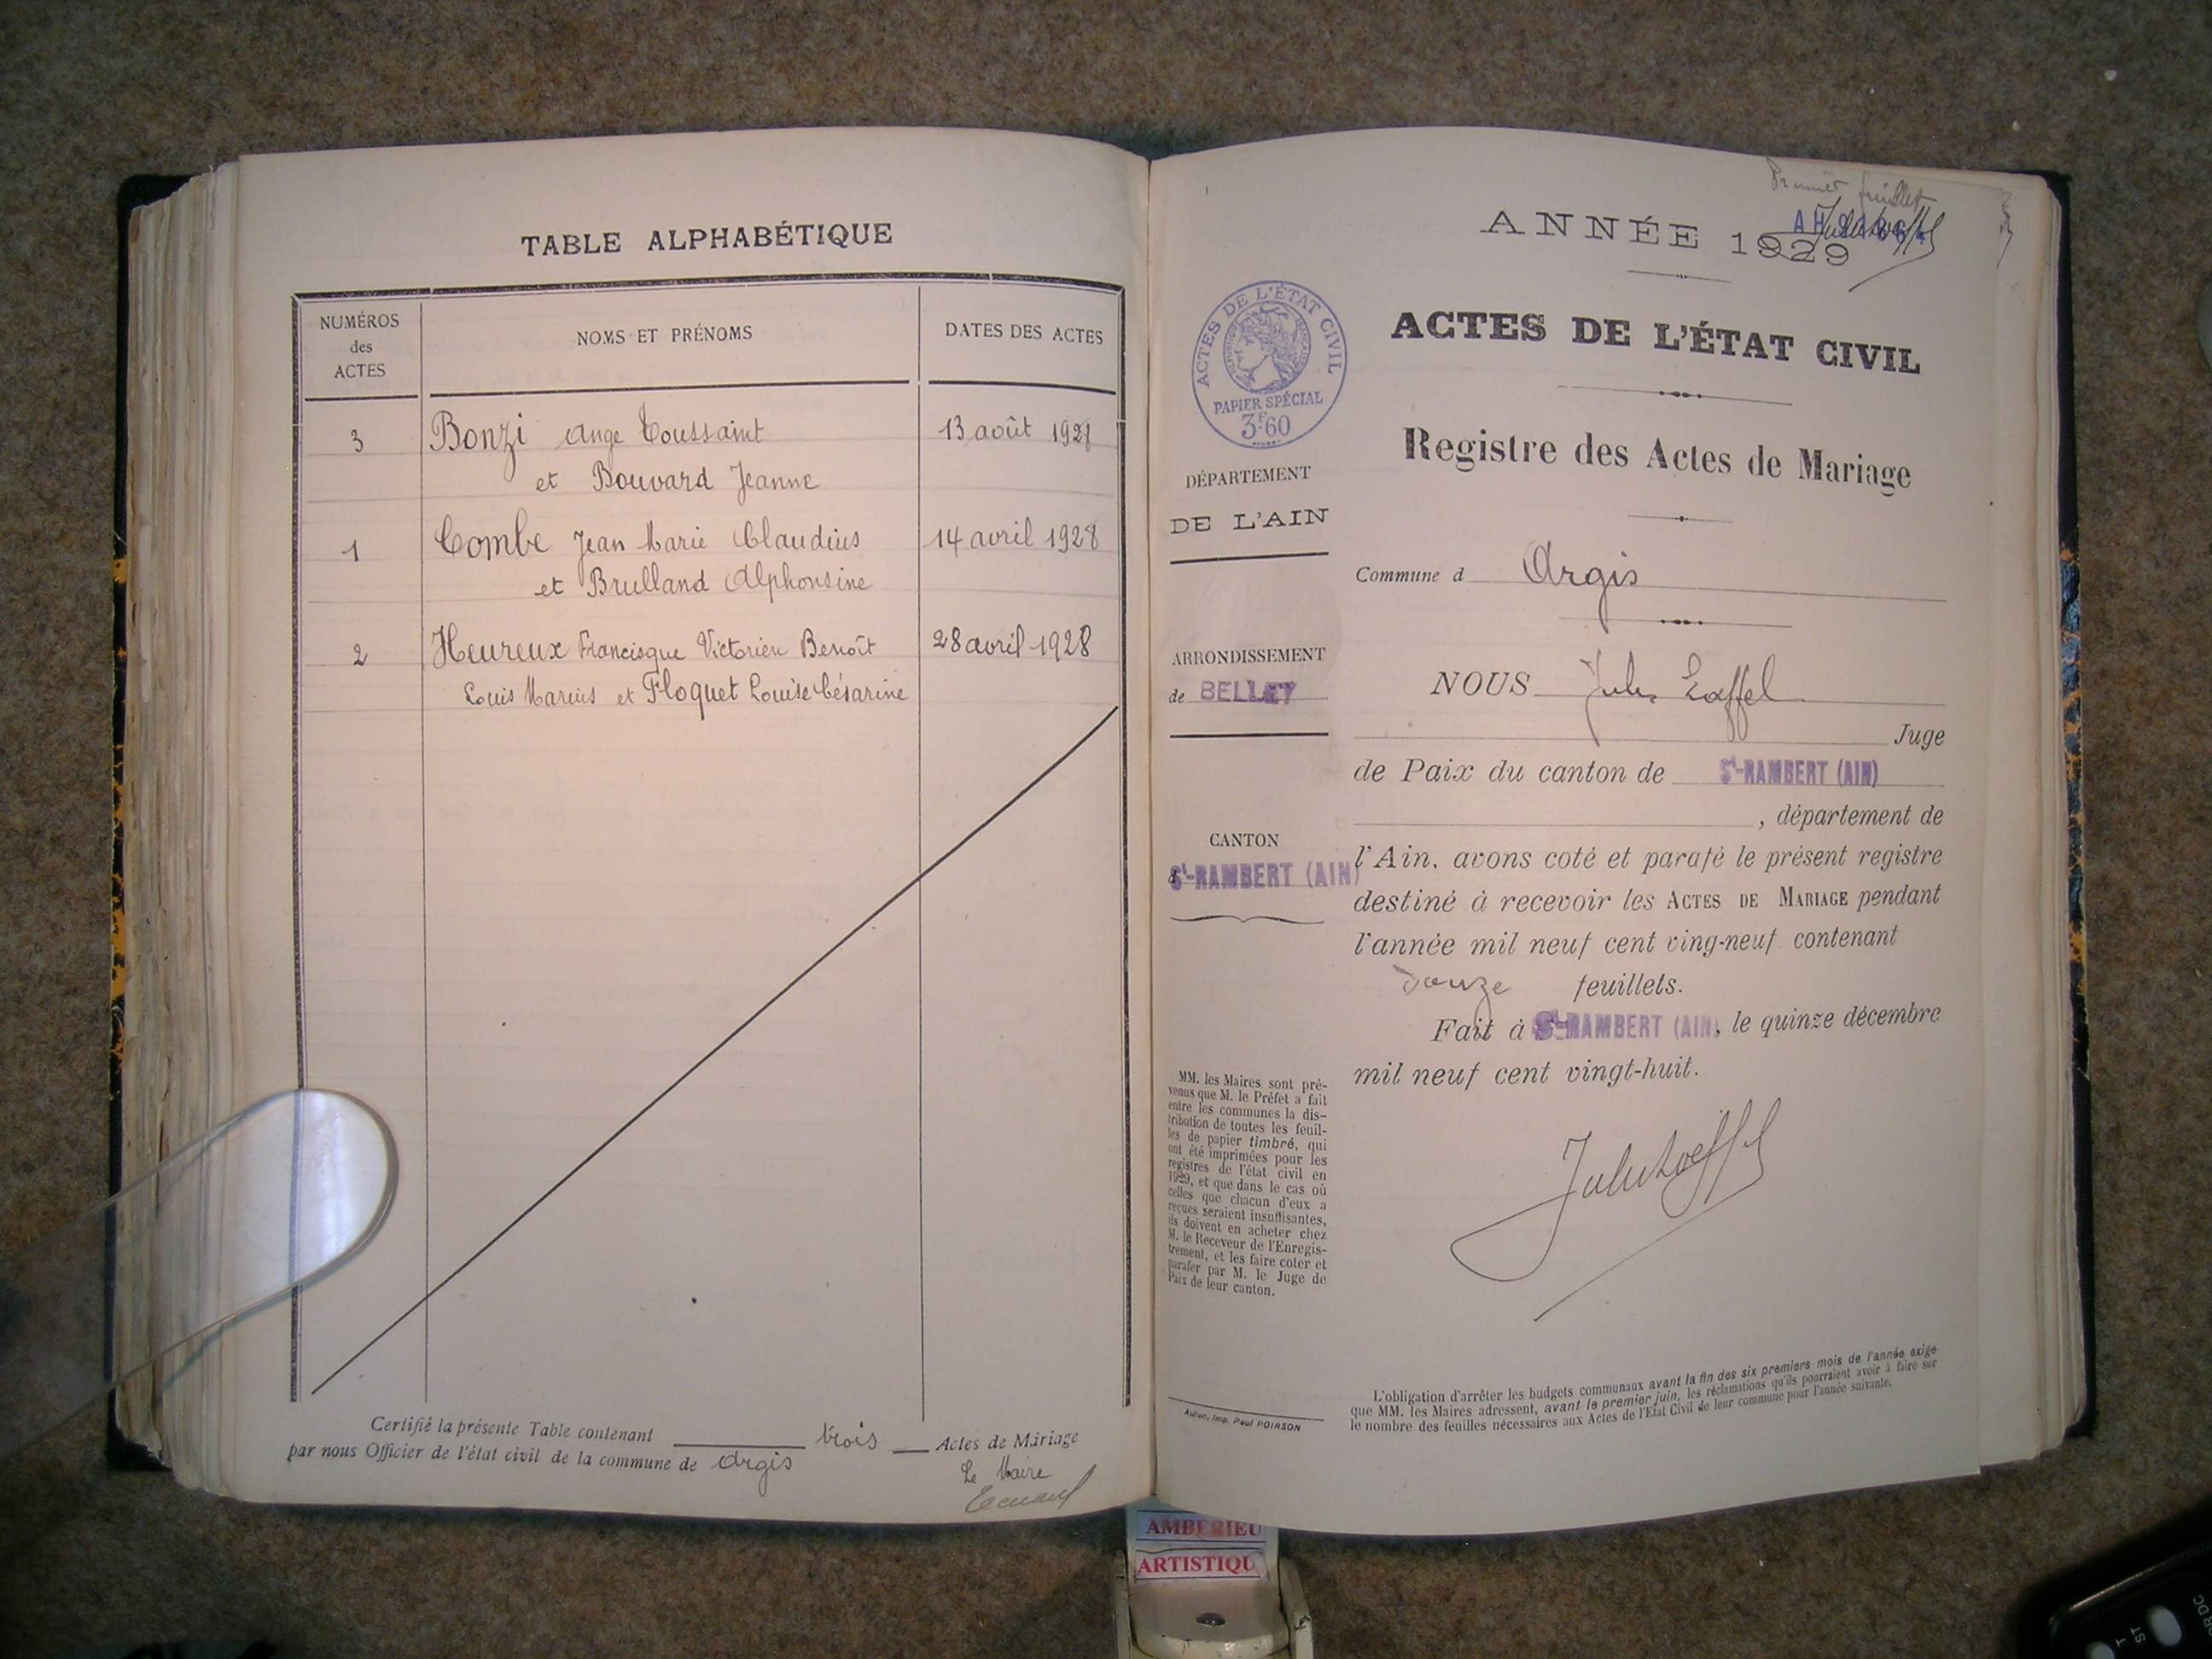 TABLE ALPHABÉTIQUE
NUMÉROS
des
ACTES
NOMS ET PRÉNOMS
DATES DES ACTES
3 Bonzi Ange Toussaint 13 août 1928
et Bouvard Jeanne
1 Combe Jean Marie Claudius 14 avril 1928
et Brulland Alphonsine
2 Heureux Francisque Victorien Benoît 28 avril 1928
Louis Marius et Floquet Louise Césarine
Certifié la présente Table contenant trois Actes de Mariage
par nous Officier de l'état civil de la commune de Argis
Le Maire
Premier feuillet
ANNÉE 1929
ACTES DE L'ÉTAT CIVIL
PAPIER SPÉCIAL
3F60
DÉPARTEMENT
DE L'AIN
ARRONDISSEMENT
de BELLEY
CANTON
St-RAMBERT (AIN)
MM. les Maires sont pré-
venus que M. le Préfet a fait
entre les communes la dis-
tribution de toutes les feuil-
les de papier timbré, qui
ont été imprimées pour les
registres de l'état civil en
1929, et que dans le cas où
celles que chacun d'eux a
reçues seraient insuffisantes,
ils doivent en acheter chez
M. le Receveur de l'Enregis-
trement, et les faire coter et
parafer par M. le Juge de
Paix de leur canton.
Autun, Imp. Paul POIRSON
ACTES DE L'ÉTAT CIVIL
Registre des Actes de Mariage
Commune d Argis
NOUS Jules Lœffel
Juge
de Paix du canton de St-RAMBERT (AIN)
, département de
l'Ain, avons coté et parafé le présent registre
destiné à recevoir les ACTES DE MARIAGE pendant
l'année mil neuf cent ving-neuf contenant
douze feuillets.
Fait à St-RAMBERT (AIN), le quinze décembre
mil neuf cent vingt-huit.
Jules Lœffel
L'obligation d'arrêter les budgets communaux avant la fin des six premiers mois de l'année exige
que MM. les Maires adressent, avant le premier juin, les réclamations qu'ils pourraient avoir à faire sur
le nombre des feuilles nécessaires aux Actes de l'Etat Civil de leur commune pour l'année suivante.
AMBERIEU
ARTISTIQU